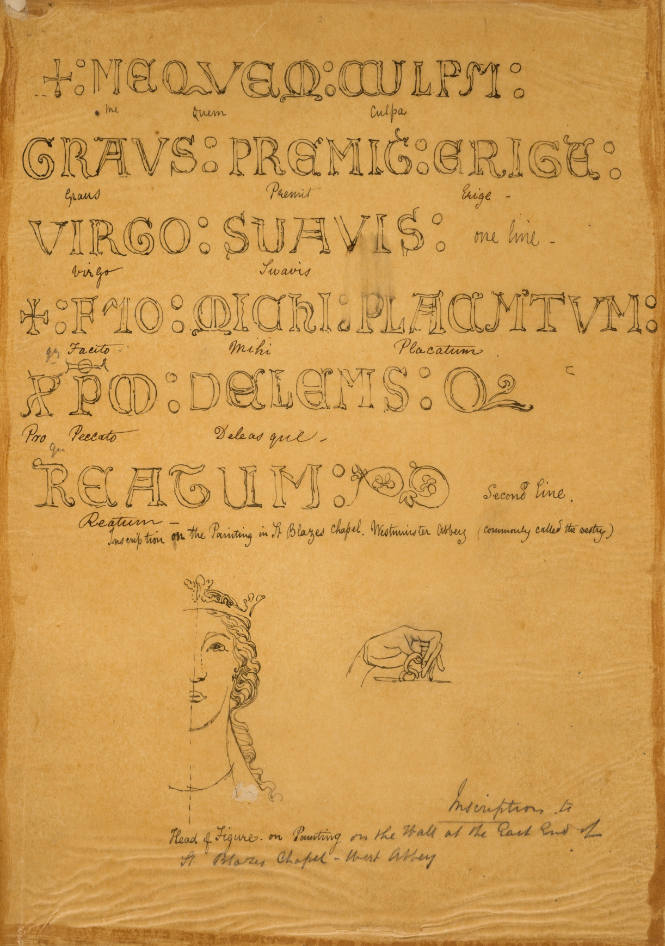 ✠:ME QVEM:CULPM:
me Quem Culpa
GRAVS:PREMIT:ERIGE:
Graus Premit Erige -
VIRGO:SUAVIS: one line -
Virgo Suavis
✠:F TO:MICHI:PLACMTVM:
Facito Mihi Placatum
PM:DELEMS:Q
Pro Peccato Deleas que -
REATUM: Second line.
Reatum -
Inscription on the Painting in St Blazes Chapel. Westminster Abbey (commonly called the vestry)
Inscription to
Head of Figure on Painting on the Wall at the East End of
St Blazes Chapel - West Abbey